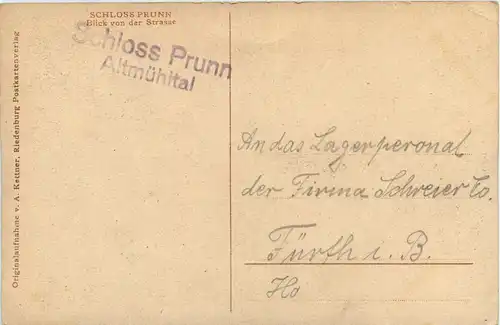 SCHLOSS PRUNN
Blick von der Strasse
Schloss Prunn
Altmühltal
Originalaufnahme v. A. Kettner, Riedenburg Postkartenverlag
An das Lagerperonal
der Firma Schreier Co.
Fürth i. B.
Ho